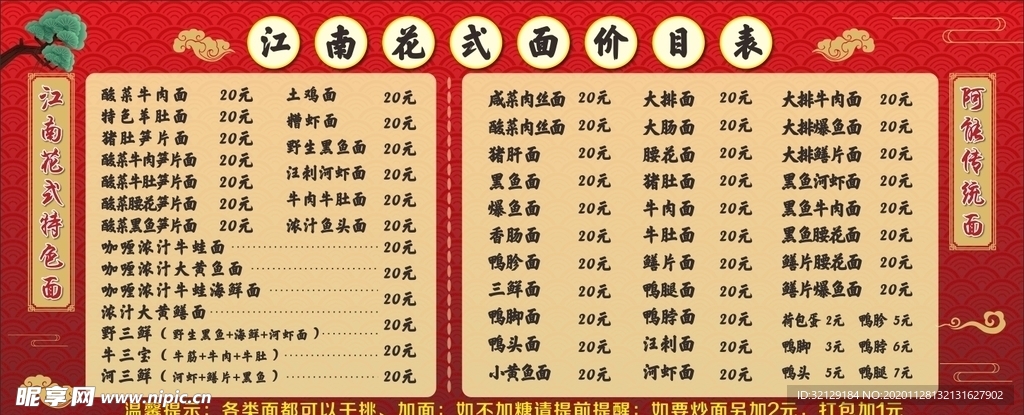 江南花式面价目表
江南花式特色面
酸菜牛肉面 20元
特色羊肚面 20元
猪肚笋片面 20元
酸菜牛肉笋片面 20元
酸菜牛肚笋片面 20元
酸菜腰花笋片面 20元
酸菜黑鱼笋片面 20元
土鸡面 20元
糟虾面 20元
野生黑鱼面 20元
汪刺河虾面 20元
牛肉牛肚面 20元
浓汁鱼头面 20元
咖喱浓汁牛蛙面 20元
咖喱浓汁大黄鱼面 20元
咖喱浓汁牛蛙海鲜面 20元
浓汁大黄鳝面 20元
野三鲜(野生黑鱼+海鲜+河虾面) 20元
牛三宝(牛筋+牛肉+牛肚) 20元
河三鲜(河虾+鳝片+黑鱼) 20元
咸菜肉丝面 20元
酸菜肉丝面 20元
猪肝面 20元
黑鱼面 20元
爆鱼面 20元
香肠面 20元
鸭胗面 20元
三鲜面 20元
鸭脚面 20元
鸭头面 20元
小黄鱼面 20元
大排面 20元
大肠面 20元
腰花面 20元
猪肚面 20元
牛肉面 20元
牛肚面 20元
鳝片面 20元
鸭腿面 20元
鸭脖面 20元
汪刺面 20元
河虾面 20元
大排牛肉面 20元
大排爆鱼面 20元
大排鳝片面 20元
黑鱼河虾面 20元
黑鱼牛肉面 20元
黑鱼腰花面 20元
鳝片腰花面 20元
鳝片爆鱼面 20元
荷包蛋 2元 鸭胗 5元
鸭脚 3元 鸭脖 6元
鸭头 5元 鸭腿 7元
阿能传统面
温馨提示:各类面都可以干挑、加面;如不加糖请提前提醒;如要炒面另加2元,打包加1元
昵享网 www.nipic.cn
www.nipic.com
ID:32129184 NO:20201128132131627902